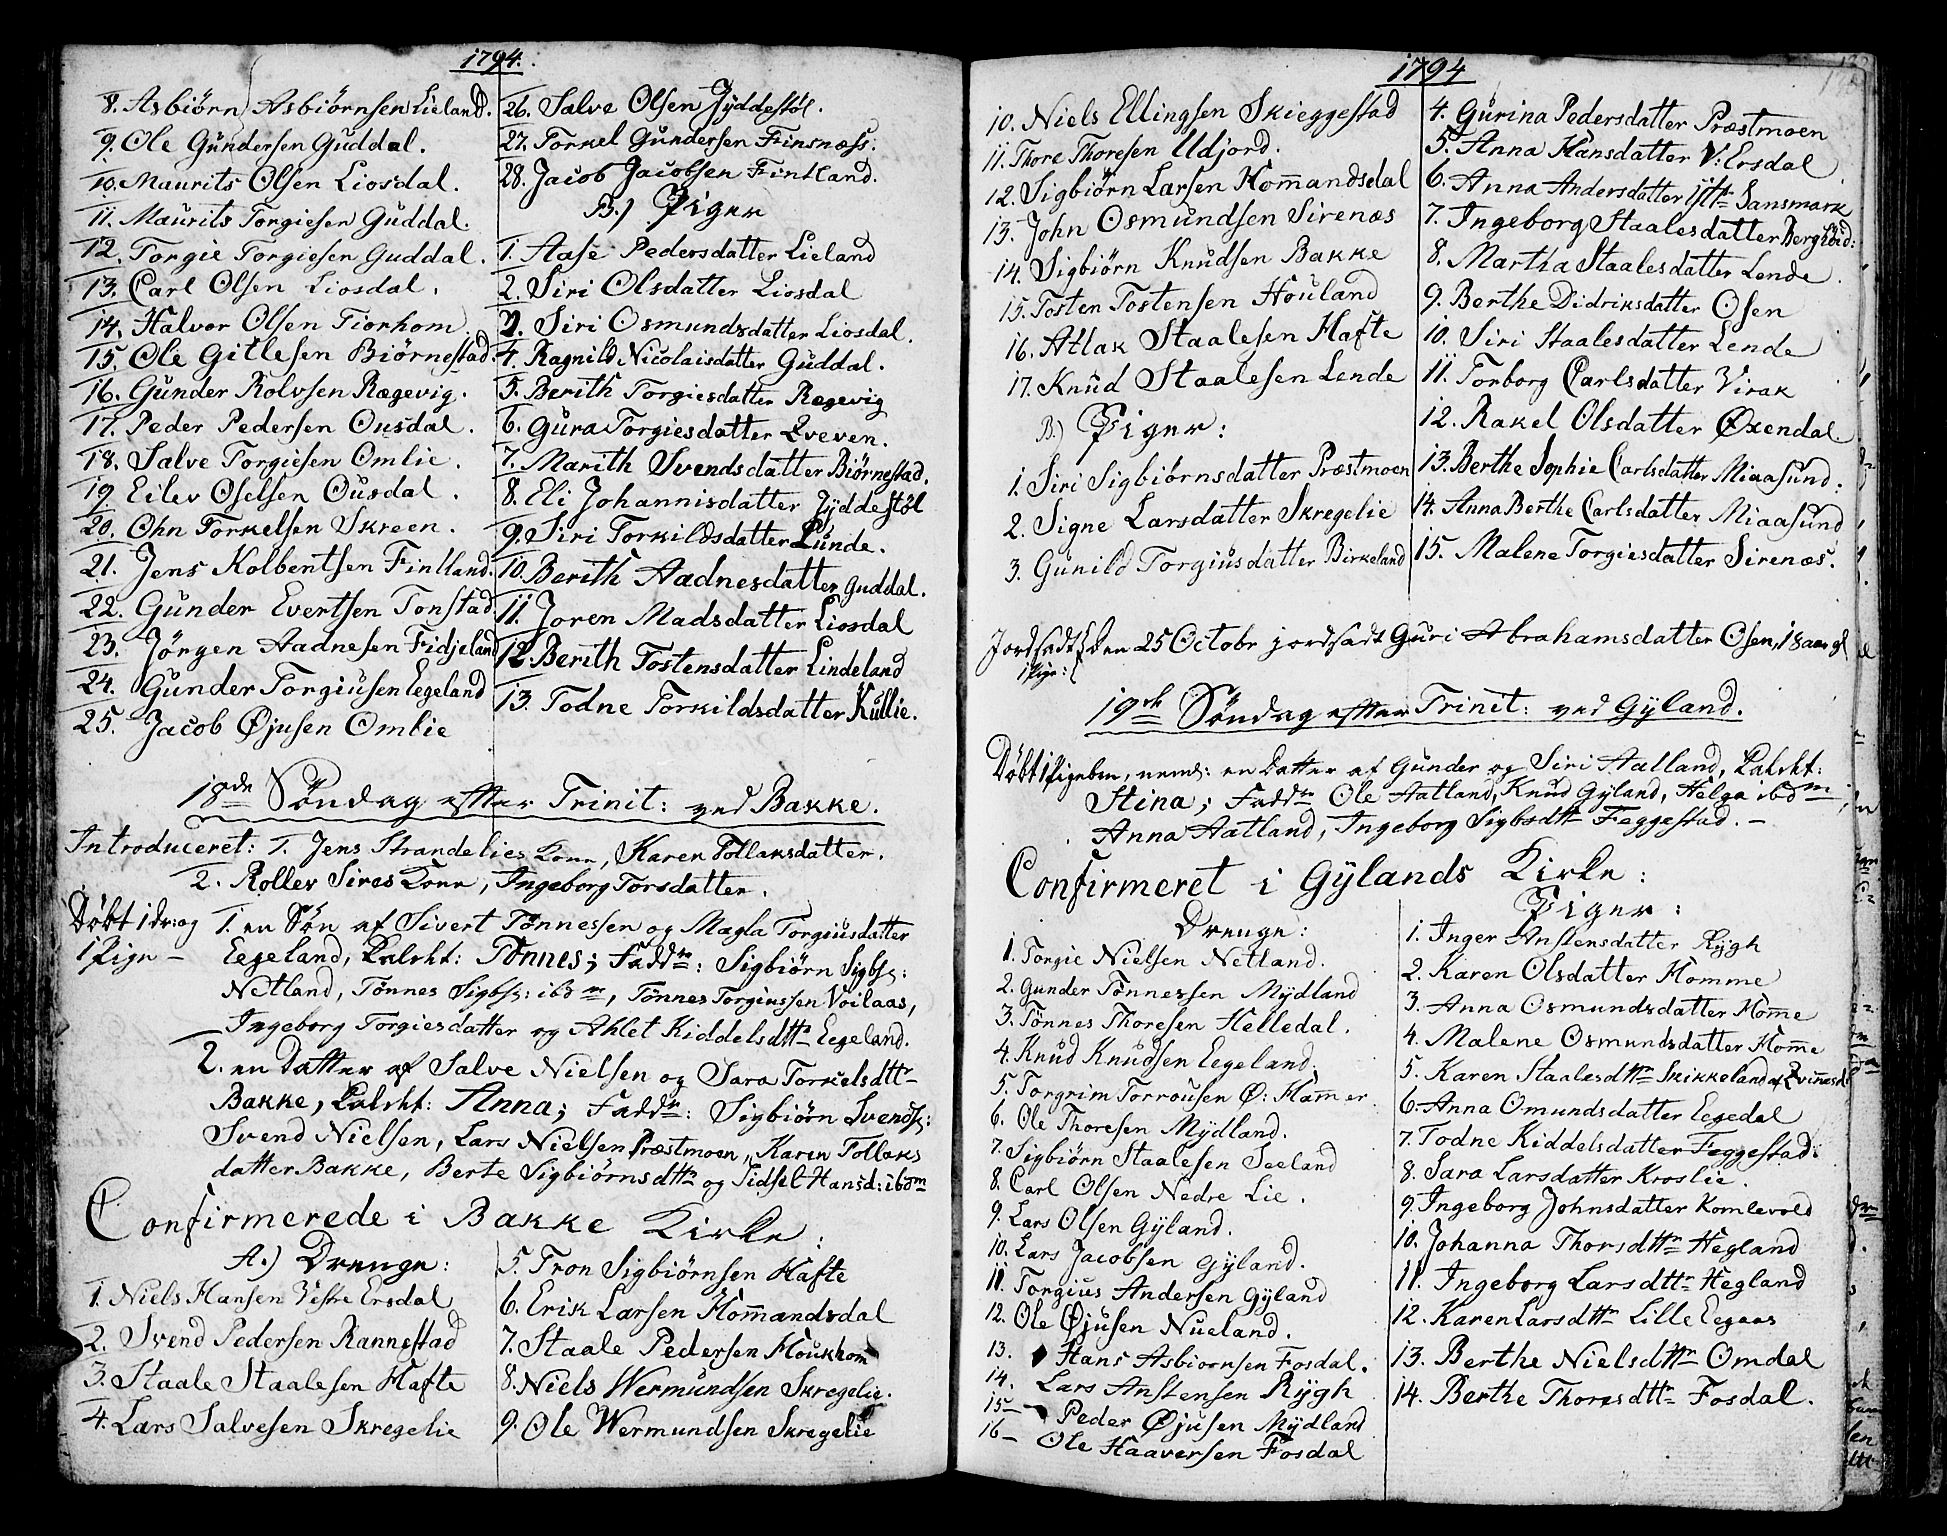 1794.
8. Asbiörn Asbiörnsen Lieland.
9. Ole Gundersen Guddal.
10. Maurits Olsen Liosdal.
11. Maurits Torgiesen Guddal.
12. Torgie Torgiesen Guddal.
13. Carl Olsen Liosdal.
14. Halvor Olsen Tiorhom.
15. Ole Gitlesen Biörnestad.
16. Gunder Rolvsen Rægevig.
17. Peder Pedersen Ousdal.
18. Salve Torgiesen Omlie.
19 Eilev Oselsen Ousdal.
20. Ohn Torkelsen Skreen.
21. Jens Kolbentsen Fintland.
22. Gunder Evertsen Tonstad.
23. Jörgen Aadnesen Fidjeland
24. Gunder Torgiusen Eegeland
25. Jacob Øjusen Omlie
26. Salve Olsen Jÿddestöl.
27. Torkel Gundersen Finsnæss.
28. Jacob Jacobsen Fintland.
B.) Piger
1. Aase Pedersdatter Lieland
2. Siri Olsdatter Liosdal
3. Siri Osmundsdatter Liosdal.
4. Ragnild Nicolaisdatter Guddal.
5. Berith Torgiesdatter Rægevig
6. Gura Torgiesdatter Qveven.
7. Marith Svendsdatter Biörnestad.
8. Eli Johannisdatter Jÿddestöl
9. Siri Torkildsdatter Lunde.
10. Berith Aadnesdatter Guddal.
11. Joren Madsdatter Liosdal
12. Berith Tostensdatter Lindeland
13. Todne Torkildsdatter Kullie.
18de Söndag efter Trinit: ved Bakke.
Introduceret: 1. Jens Strandelies Kone, Karen Tollaksdatter.
2. Rollev Sires Kone, Ingeborg Torsdatter.
Döbt 1 dr: og 1. en Sön af Sivert Tönnessen og Magla Torgiusdatter
1 Pige – Eegeland, Kaldet: Tönnes; Fadd: Sigbiörn Sigbs:
Netland, Tönnes Sigbs: ibdm, Tönnes Torgiussen Voilaas,
Ingeborg Torgiesdatter og Ahlet Kiddelsdttr Eegeland.
2. en Datter af Salve Nielsen og Sara Torkelsdttr
Bakke, Kaldet: Anna; Fadd: Sigbiörn Svends:
Svend Nielsen, Lars Nielsen Præstmoen, Karen Tollaks
datter Bakke, Berte Sigbiörnsdttr og Sidsel Hansd: ibdm
Confirmerede i Bakke Kirke:
A.) Drenge:
1. Niels Hansen Vestre Ersdal
2. Svend Pedersen Rannestad
3. Staale Staalesen Hafte
4. Lars Salvesen Skregelie
5. Tron Sigbiörnsen Hafte
6. Erik Larsen Homandsdal
7. Staale Pedersen Houkhom
8. Niels Wermundsen Skregelie.
9. Ole Wermundsen Skregelie
1794
10. Niels Ellingsen Skieggestad
11. Thore Thoresen Udjord.
12. Sigbiörn Larsen Homandsdal
13. John Osmundsen Sirenæs
14. Sigbiörn Knudsen Bakke
15. Tosten Tostensen Houland
16. Atlak Staalesen Hafte
17. Knud Staalesen Lende
B.) Piger:
1. Siri Sigbiörnsdatter Præstmoen
2. Signe Larsdatter Skregelie
3. Gunild Torgiusdatter Birkeland
4. Gurina Pedersdatter Præstmoen
5. Anna Hansdatter V: Ersdal
6. Anna Andersdatter Sansmark
7. Ingeborg Staalesdatter
8. Martha Staalesdatter Lende
9. Berthe Didriksdatter Osen
10. Siri Staalesdatter Lende
11. Torborg Carlsdatter Virak
12. Rakel Olsdatter Øxendal
13. Berthe Sophie Carlsdatter Miaasund.
14. Anna Berthe Carlsdatter Miaasund
15. Malene Torgiesdatter Sirenæs.
Jordsadt den 25 Octobr jordsadt Guri Abrahamsdatter Osen, 18 aar gl
1 Pige:
19de Söndag efter Trinit: ved Gÿland.
Döbt 1 Pigebrn, neml: en Datter af Gunder og Siri Aatland, Kaldet:
Stina; Fadd Ole Aatland, Knud Gÿland, Helga ibdm
Anna Aatland, Ingeborg Sigbsdttr Feggestad. –
Confirmeret i Gÿlands Kirke:
Drenge:
1. Torgie Nielsen Netland.
2. Gunder Tönnessen Mÿdland
3. Tönnes Thoresen Helledal.
4. Knud Knudsen Eegeland.
5. Torgrim Torrousen Ø: Hamer.
6. Ole Thoresen Mÿdland.
7. Sigbiörn Staalesen Seeland
8. Carl Olsen Nedre Lie.
9. Lars Olsen Gÿland.
10. Lars Jacobsen Gÿland.
11. Torgius Andersen Gÿland
12. Ole Øjusen Nueland.
13. Hans Asbiornsen Fosdal.
14. Lars Anstensen Rÿgh
15– Peder Øjusen Mÿdland
16– Ole Haaversen Fosdal
Piger:
1. Inger Anstensdatter Rÿgh
2. Karen Olsdatter Homme
3. Anna Osmundsdatter Home
4. Malene Osmundsdatter Home
5. Karen Staalesdttr Skikkeland af
6. Anna Omundsdatter Eegedal
7. Todne Kiddelsdatter Feggestad:
8. Sara Larsdatter Kroslie.
9. Ingeborg Johnsdatter Komlevold
10. Johanna Thorsdttr Hegland
11. Ingeborg Larsdttr Hegland
12. Karen Larsdttr Lille Eegaas
13. Berthe Nielsdttr Omdal
14. Berthe Thoresdttr Fosdal.